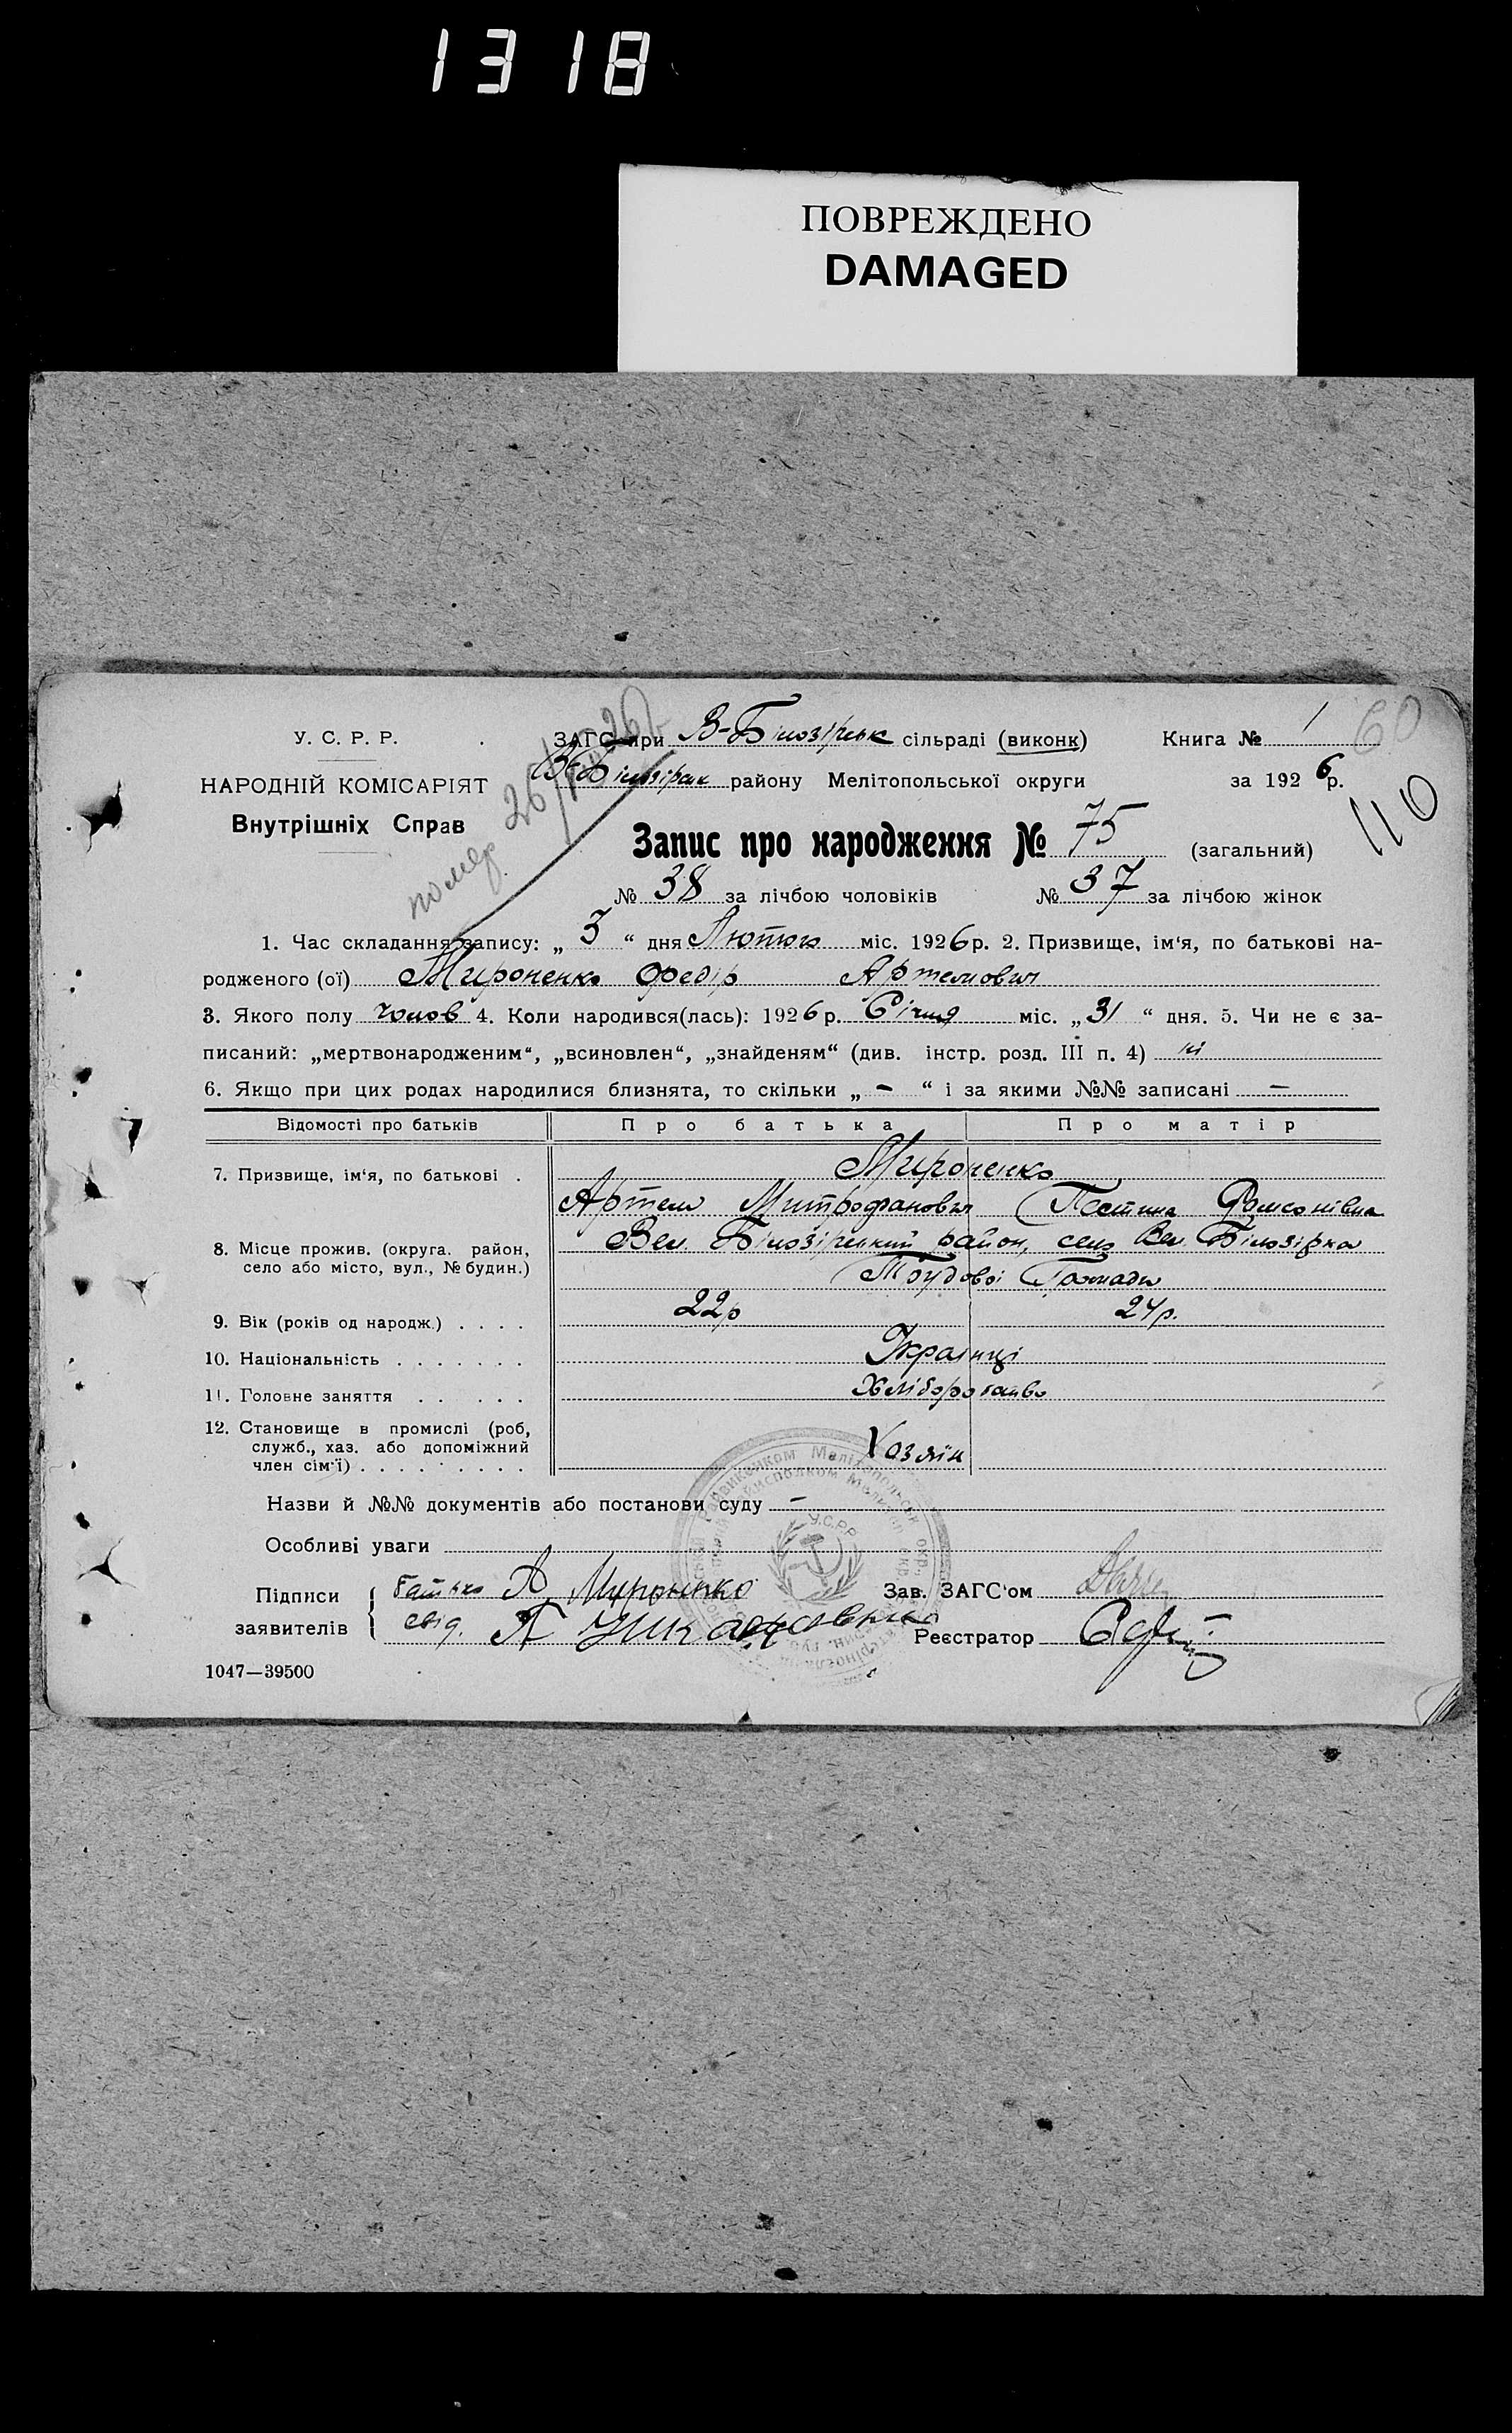 1318
ПОВРЕЖДЕНО
DAMAGED
60
110
У. С. Р. Р.
НАРОДНІЙ КОМІСАРІЯТ
Внутрішніх Справ
помер. 26
ЗАГС при В-Білозірськ сільраді (виконк) Книга № 1
В-Білозірськ району Мелітопольської округи за 1926 р.
Запис про народження № 75 (загальний)
№ 38 за лічбою чоловіків № 37 за лічбою жінок
1. Час складання запису: „ 3 “ дня Лютого міс. 1926 р. 2. Призвище, ім‘я, по батькові на-
родженого (ої) Мироненко Федір Артемович
3. Якого полу чолов 4. Коли народився(лась): 1926 р. Січня міс. „ 31 “ дня. 5. Чи не є за-
писаний: „мертвонародженим“, „всиновлен“, „знайденям“ (див. інстр. розд. III п. 4) ні
6. Якщо при цих родах народилися близнята, то скільки „ - “ і за якими №№ записані —
Відомості про батьків Про батька Про матір
7. Призвище, ім‘я, по батькові . Мироненко
Артем Митрофанович Пестина Самсонівна
8. Місце прожив. (округа. район, Вел. Білозірський район, село Вел. Білозірка
село або місто, вул., № будин.) Трудової Громади
9. Вік (років од народж.) . . . . 22р 24р.
10. Національність . . . . . . . Українці
11. Головне заняття . . . . . . Хліборобство
12. Становище в промислі (роб,
служб., хаз. або допоміжний
член сім‘ї) . . . . . . . . . Хозяїн
Назви й №№ документів або постанови суду —
Особливі уваги
Підписи батько А Мироненко Зав. ЗАГС‘ом
заявителів свід. Реєстратор
У.С.Р.Р.
1047—39500